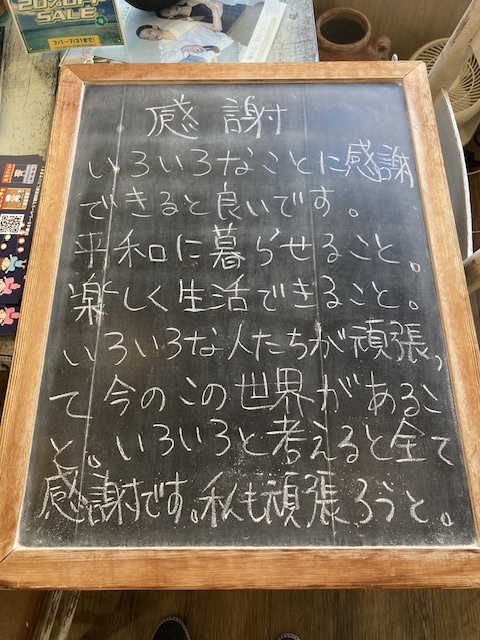 20%OFF
SALE
7/1〜7/31まで!
感謝
いろいろなことに感謝
できると良いです。
平和に暮らせること。
楽しく生活できること。
いろいろな人たちが頑張っ
て今のこの世界があるこ
と。いろいろと考えると全て
感謝です。私も頑張ろうと。